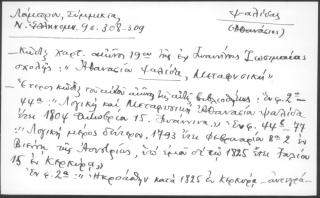 Λάμπρου, Σύμμικτα,
Ν. Ἑλληνομν. 9ος 308-309
Ψαλίδας
(Ἀθανάσιος)
— Κῶδιξ χαρτ. αἰῶνος 19ου τῆς ἐν Ἰωαννίνοις Ζωσιμαίας
σχολῆς: "Ἀθανασίου Ψαλίδα, Μεταφυσική"
— Ἕτερος κῶδιξ τοῦ αὐτοῦ αἰῶνος τῆς αὐτῆς βιβλιοθήκης: ἐν φ. 2α-
44α: "Λογική καί Μεταφυσική Ἀθανασίου Ψαλίδα
ἔτει 1804 Ὀκτωβρίου 15. Ἰωάννινα." Ἐν φ. 44β-77
: "Λογικῆς μέρος δεύτερον. 1793 ἔτει Φεβρουαρίου 8ῃ 2 ἐν
Βιέννῃ τῆς Αὐστρίας, ὑπ' ἐμοῦ δέ τῷ 1825 ἔτει Ἰουλίου
15 ἐν Κερκύρᾳ"
Ἐν φ. 2α: κατά 1825 ἐν Κερκύρᾳ